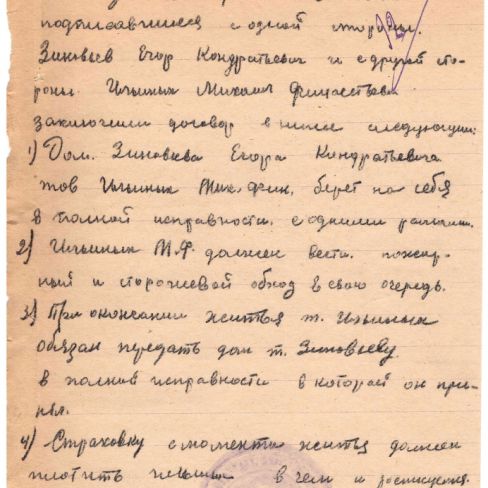 подписавшиеся с одной стороны.
Зиновьев Егор Кондратьевич и с другой сто-
роны Ильиных Михаил
заключили договор в ниже следующим:
1) Дом. Зиновьева Егора Кондратьевича
тов Ильиных Мих. берет на себя
в полной исправности. с одними
2) Ильиных М.Ф. должен вести. пожар-
ный и сторожевой обход в свою очередь.
3) При окончании житья т. Ильиных
обязан передать дом т. Зиновьеву
в полной исправности в которой он при-
нял.
4) Страховку с момента житья должен
платить Ильиных в чем и росписуемся.